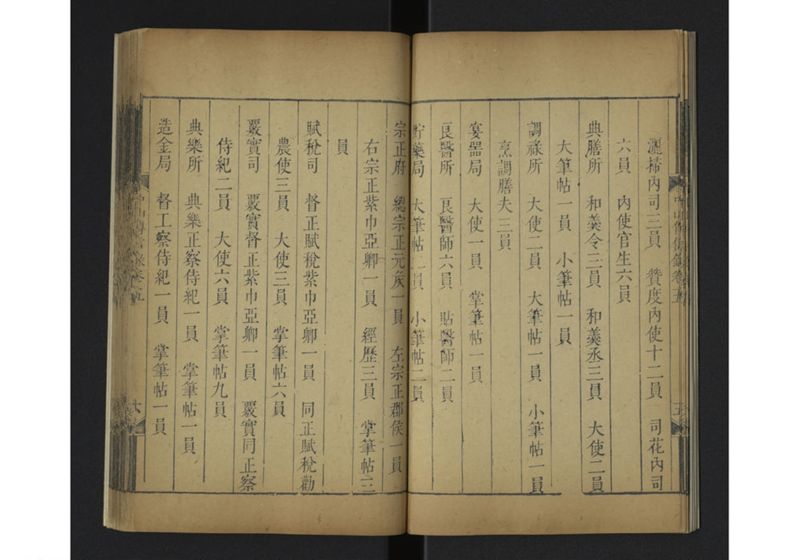 灑掃內司三員　贊度內使十二員　司花內司
六員　內使官生六員
典膳所　和羹令三員　和羹丞三員　大使二員
大筆帖一員　小筆帖一員
調祿所　大使二員　大筆帖一員　小筆帖一員
烹調膳夫三員
宴器局　大使一員　掌筆帖一員
良醫所　良醫師六員　貼醫師二員
貯藥局　大筆帖二員　小筆帖二員
宗正府　總宗正元侯一員　左宗正郡侯一員
右宗正紫巾亞卿一員　經歷三員　掌筆帖三
員
賦稅司　督正賦稅紫巾亞卿一員　同正賦稅勸
農使三員　大使三員　掌筆帖六員
覈實司　覈實督正紫巾亞卿一員　覈實同正察
侍紀二員　大使六員　掌筆帖九員
典樂所　典樂正察侍紀一員　掌筆帖一員
造金局　督工察侍紀一員　掌筆帖一員
六